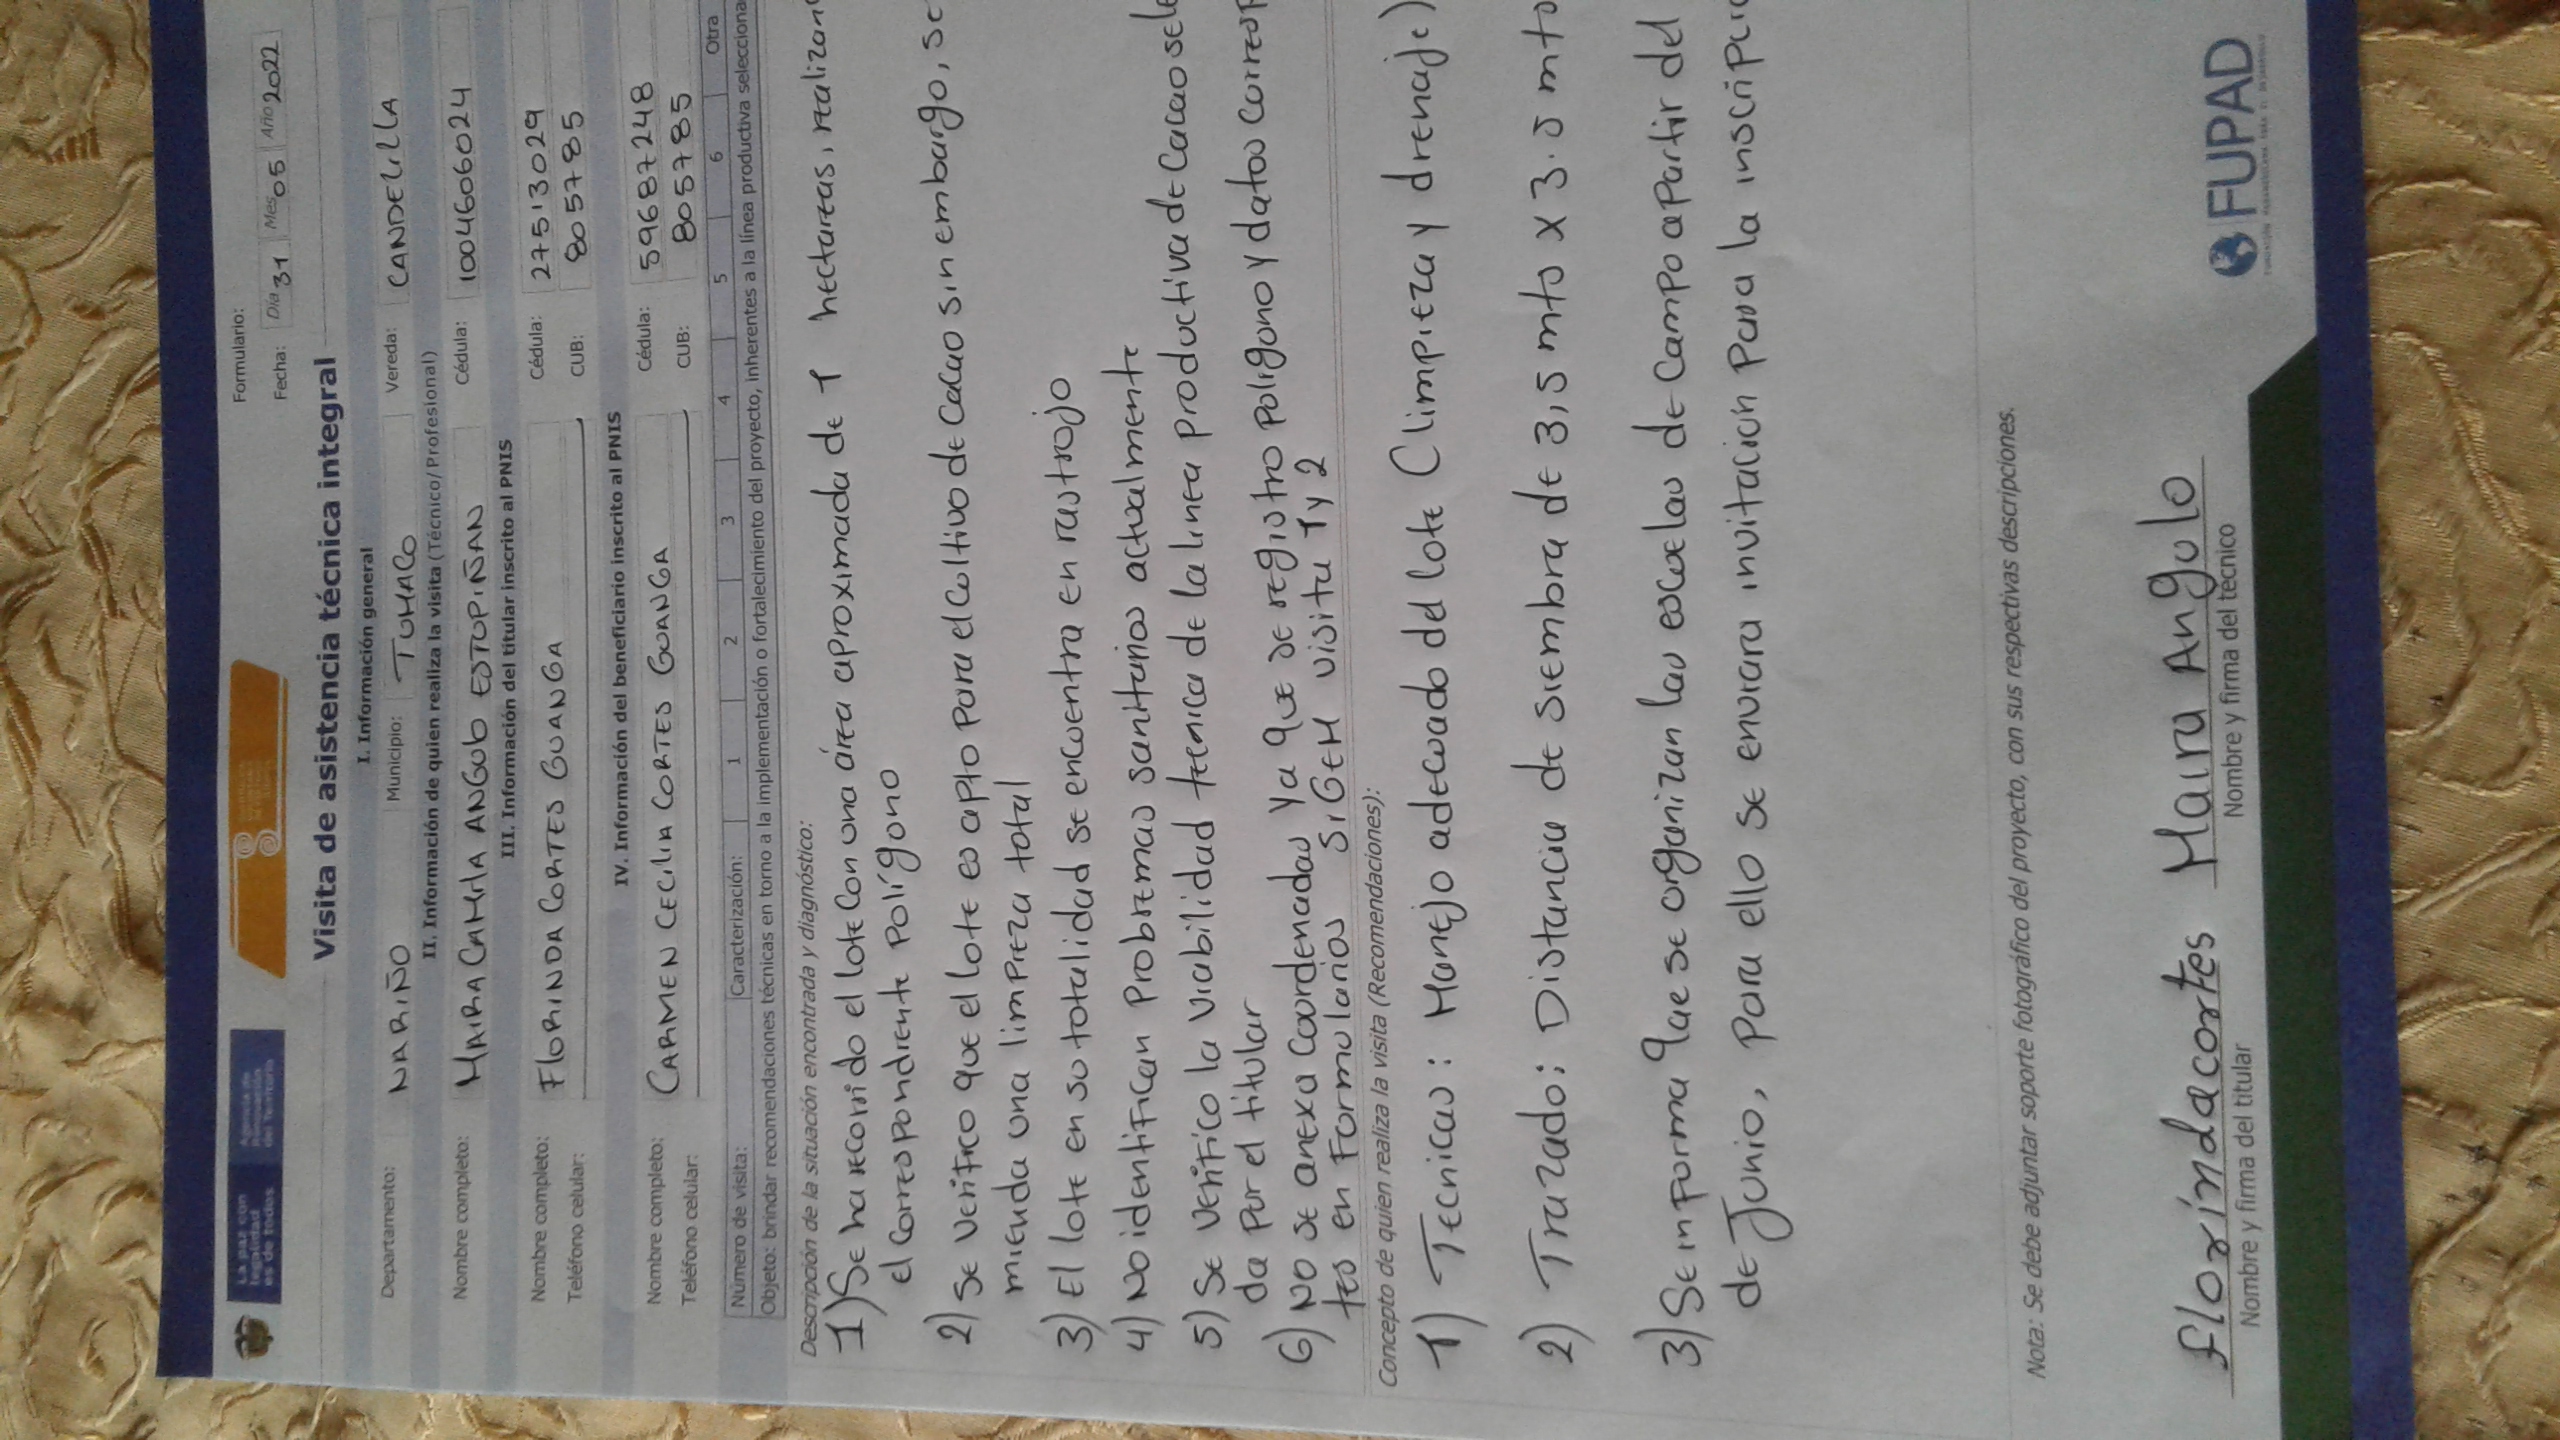 La paz con
legalidad
es de todos
Agencia de
Renovación
del Territorio
Formulario:
Fecha: Día 31 Mes 05 Año 2022
Visita de asistencia técnica integral
I. Información general
Departamento: NARIÑO Municipio: TUMACO Vereda: CANDELILLA
II. Información de quien realiza la visita (Técnico/Profesional)
Nombre completo: MAIRA CAMILA ANGULO ESTUPIÑAN Cédula: 1004606024
III. Información del titular inscrito al PNIS
Nombre completo: FLORINDA CORTES GUANGA Cédula: 27513029
Teléfono celular: CUB: 8057785
IV. Información del beneficiario inscrito al PNIS
Nombre completo: CARMEN CECILIA CORTES GUANGA Cédula: 59687248
Teléfono celular: CUB: 8057785
Número de visita: Caracterización: 1 2 3 4 5 6 Otra
Objeto: brindar recomendaciones técnicas en torno a la implementación o fortalecimiento del proyecto, inherentes a la línea productiva selecciona
Descripción de la situación encontrada y diagnóstico:
1) Se ha recorrido el lote con una área aproximada de 1 hectareas, realizan
el correspondiente Polígono
2) Se verifico que el lote es apto para el cultivo de cacao sin embargo, se
mienda una limpieza total
3) El lote en su totalidad se encuentra en rastrojo
4) No identifican Problemas sanitarios actualmente
5) Se verifico la viabilidad tecnica de la linea productiva de Cacao sele
da por el titular
6) No se anexa coordenadas ya que se registro poligono y datos corresp
tes en Formularios SIGEM visita 1 y 2
Concepto de quien realiza la visita (Recomendaciones):
1) Tecnicas: Manejo adecuado del lote (limpieza y drenaje)
2) Trazado: Distancia de siembra de 3,5 mts x 3.5 mts
3) Se informa que se organizan las escuelas de Campo a partir del
de Junio, para ello se enviara invitación para la inscripció
Nota: Se debe adjuntar soporte fotográfico del proyecto, con sus respectivas descripciones.
florinda cortes Maira Angulo
Nombre y firma del titular Nombre y firma del técnico
FUPAD